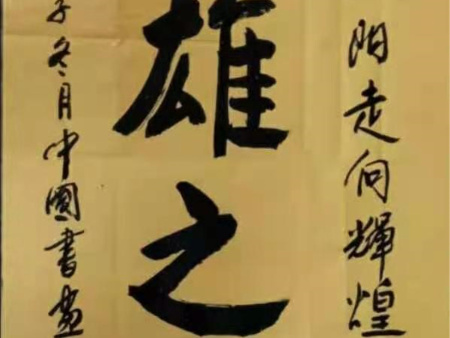 阳走向輝煌
雄之
子冬月中國書畫